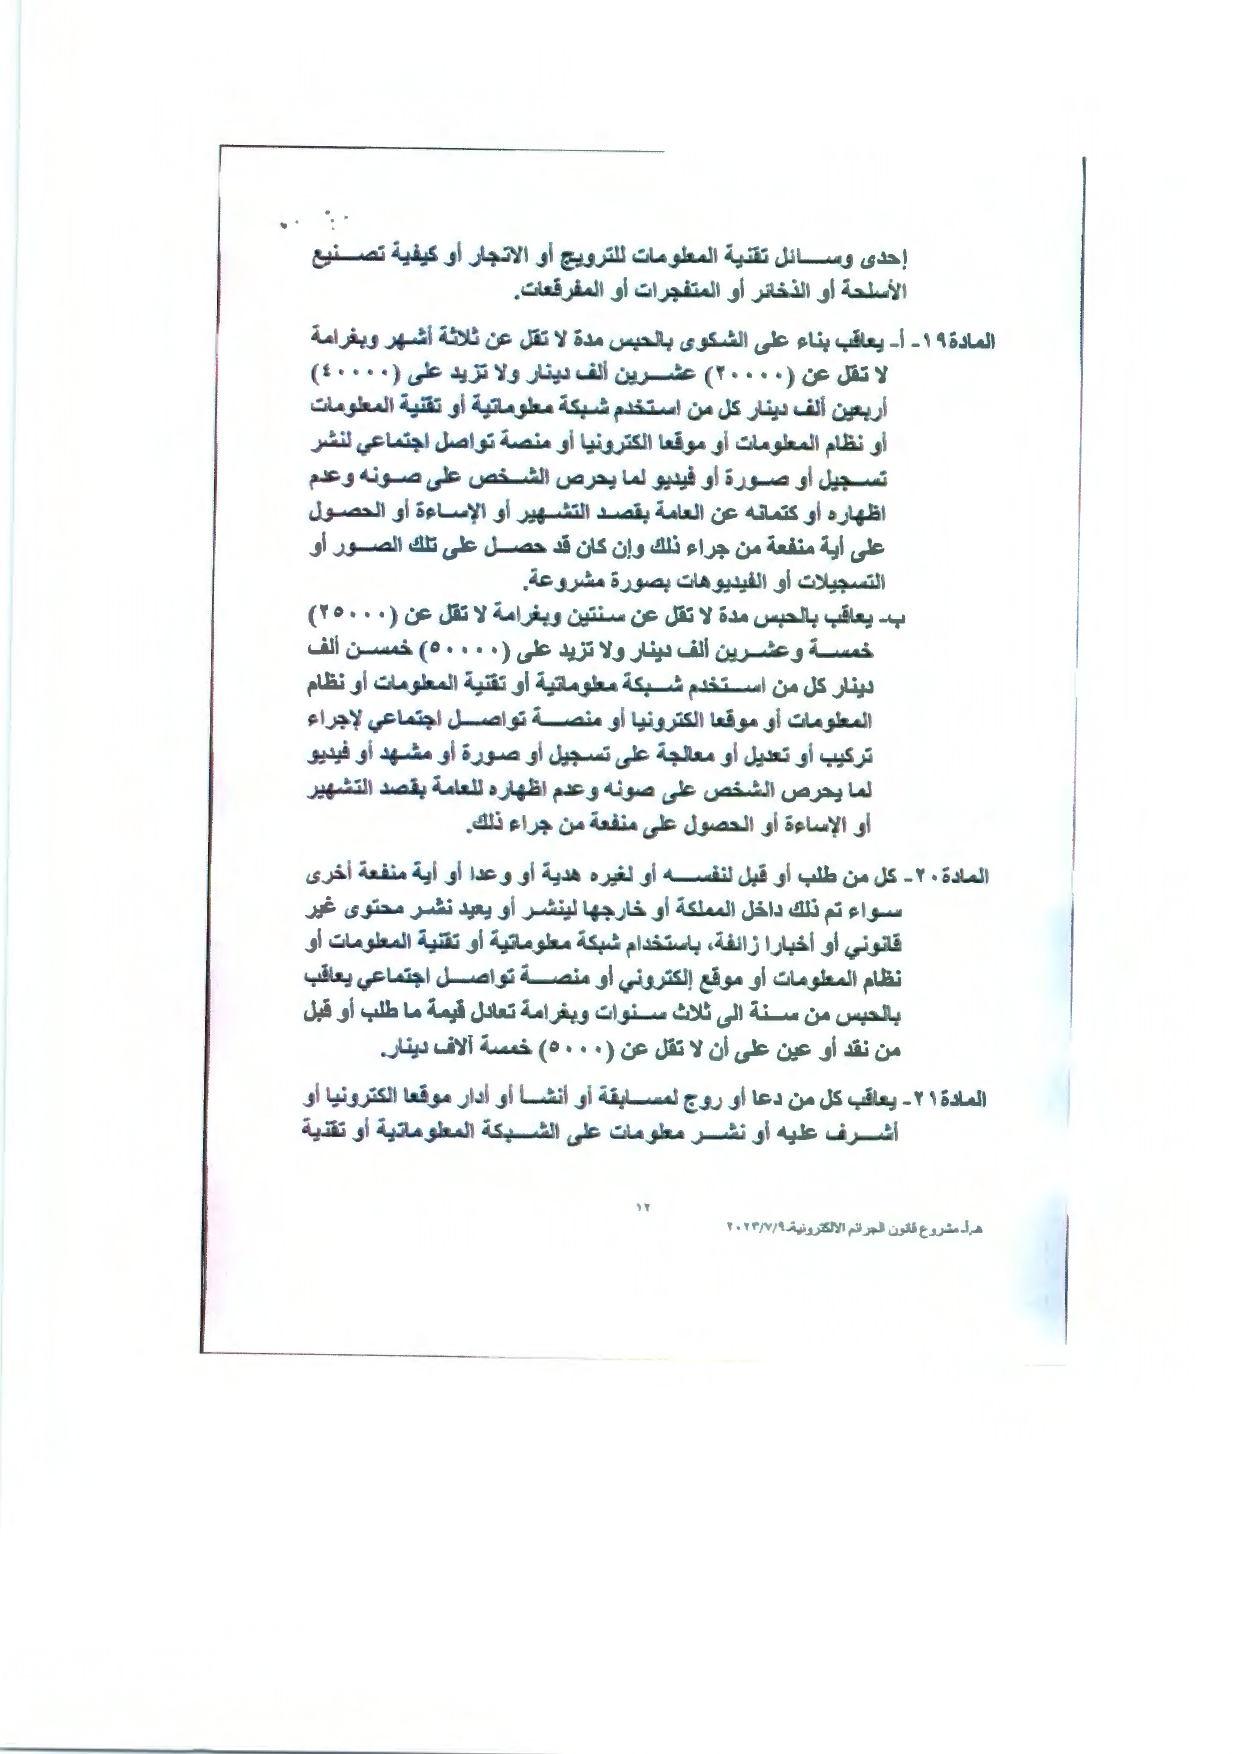 إحدى وسائل تقنية المعلومات للترويج أو الاتجار أو كيفية تصنيع
الأسلحة أو الذخائر أو المتفجرات أو المفرقعات.
المادة١٩- أ- يعاقب بناء على الشكوى بالحبس مدة لا تقل عن ثلاثة أشهر وبغرامة
لا تقل عن (٢٠٠٠٠) عشرين ألف دينار ولا تزيد على (٤٠٠٠٠)
أربعين ألف دينار كل من استخدم شبكة معلوماتية أو تقنية المعلومات
أو نظام المعلومات أو موقعا الكترونيا أو منصة تواصل اجتماعي لنشر
تسجيل أو صورة أو فيديو لما يحرص الشخص على صونه وعدم
اظهاره أو كتمانه عن العامة بقصد التشهير أو الإساءة أو الحصول
على أية منفعة من جراء ذلك وإن كان قد حصل على تلك الصور أو
التسجيلات أو الفيديوهات بصورة مشروعة.
ب- يعاقب بالحبس مدة لا تقل عن سنتين وبغرامة لا تقل عن (٢٥٠٠٠)
خمسة وعشرين ألف دينار ولا تزيد على (٥٠٠٠٠) خمسن ألف
دينار كل من استخدم شبكة معلوماتية أو تقنية المعلومات أو نظام
المعلومات أو موقعا الكترونيا أو منصة تواصل اجتماعي لإجراء
تركيب أو تعديل أو معالجة على تسجيل أو صورة أو مشهد أو فيديو
لما يحرص الشخص على صونه وعدم اظهاره للعامة بقصد التشهير
أو الإساءة أو الحصول على منفعة من جراء ذلك.
المادة٢٠- كل من طلب أو قبل لنفسه أو لغيره هدية أو وعدا أو أية منفعة أخرى
سواء تم ذلك داخل المملكة أو خارجها لينشر أو يعيد نشر محتوى غير
قانوني أو أخبارا زائفة، باستخدام شبكة معلوماتية أو تقنية المعلومات أو
نظام المعلومات أو موقع إلكتروني أو منصة تواصل اجتماعي يعاقب
بالحبس من سنة الى ثلاث سنوات وبغرامة تعادل قيمة ما طلب أو قبل
من نقد أو عين على أن لا تقل عن (٥٠٠٠) خمسة آلاف دينار.
المادة٢١- يعاقب كل من دعا أو روج لمسابقة أو أنشأ أو أدار موقعا الكترونيا أو
أشرف عليه أو نشر معلومات على الشبكة المعلوماتية أو تقنية
١٢
هـ.أ- مشروع قانون الجرائم الالكترونية-٢٠٢٣/٧/٩